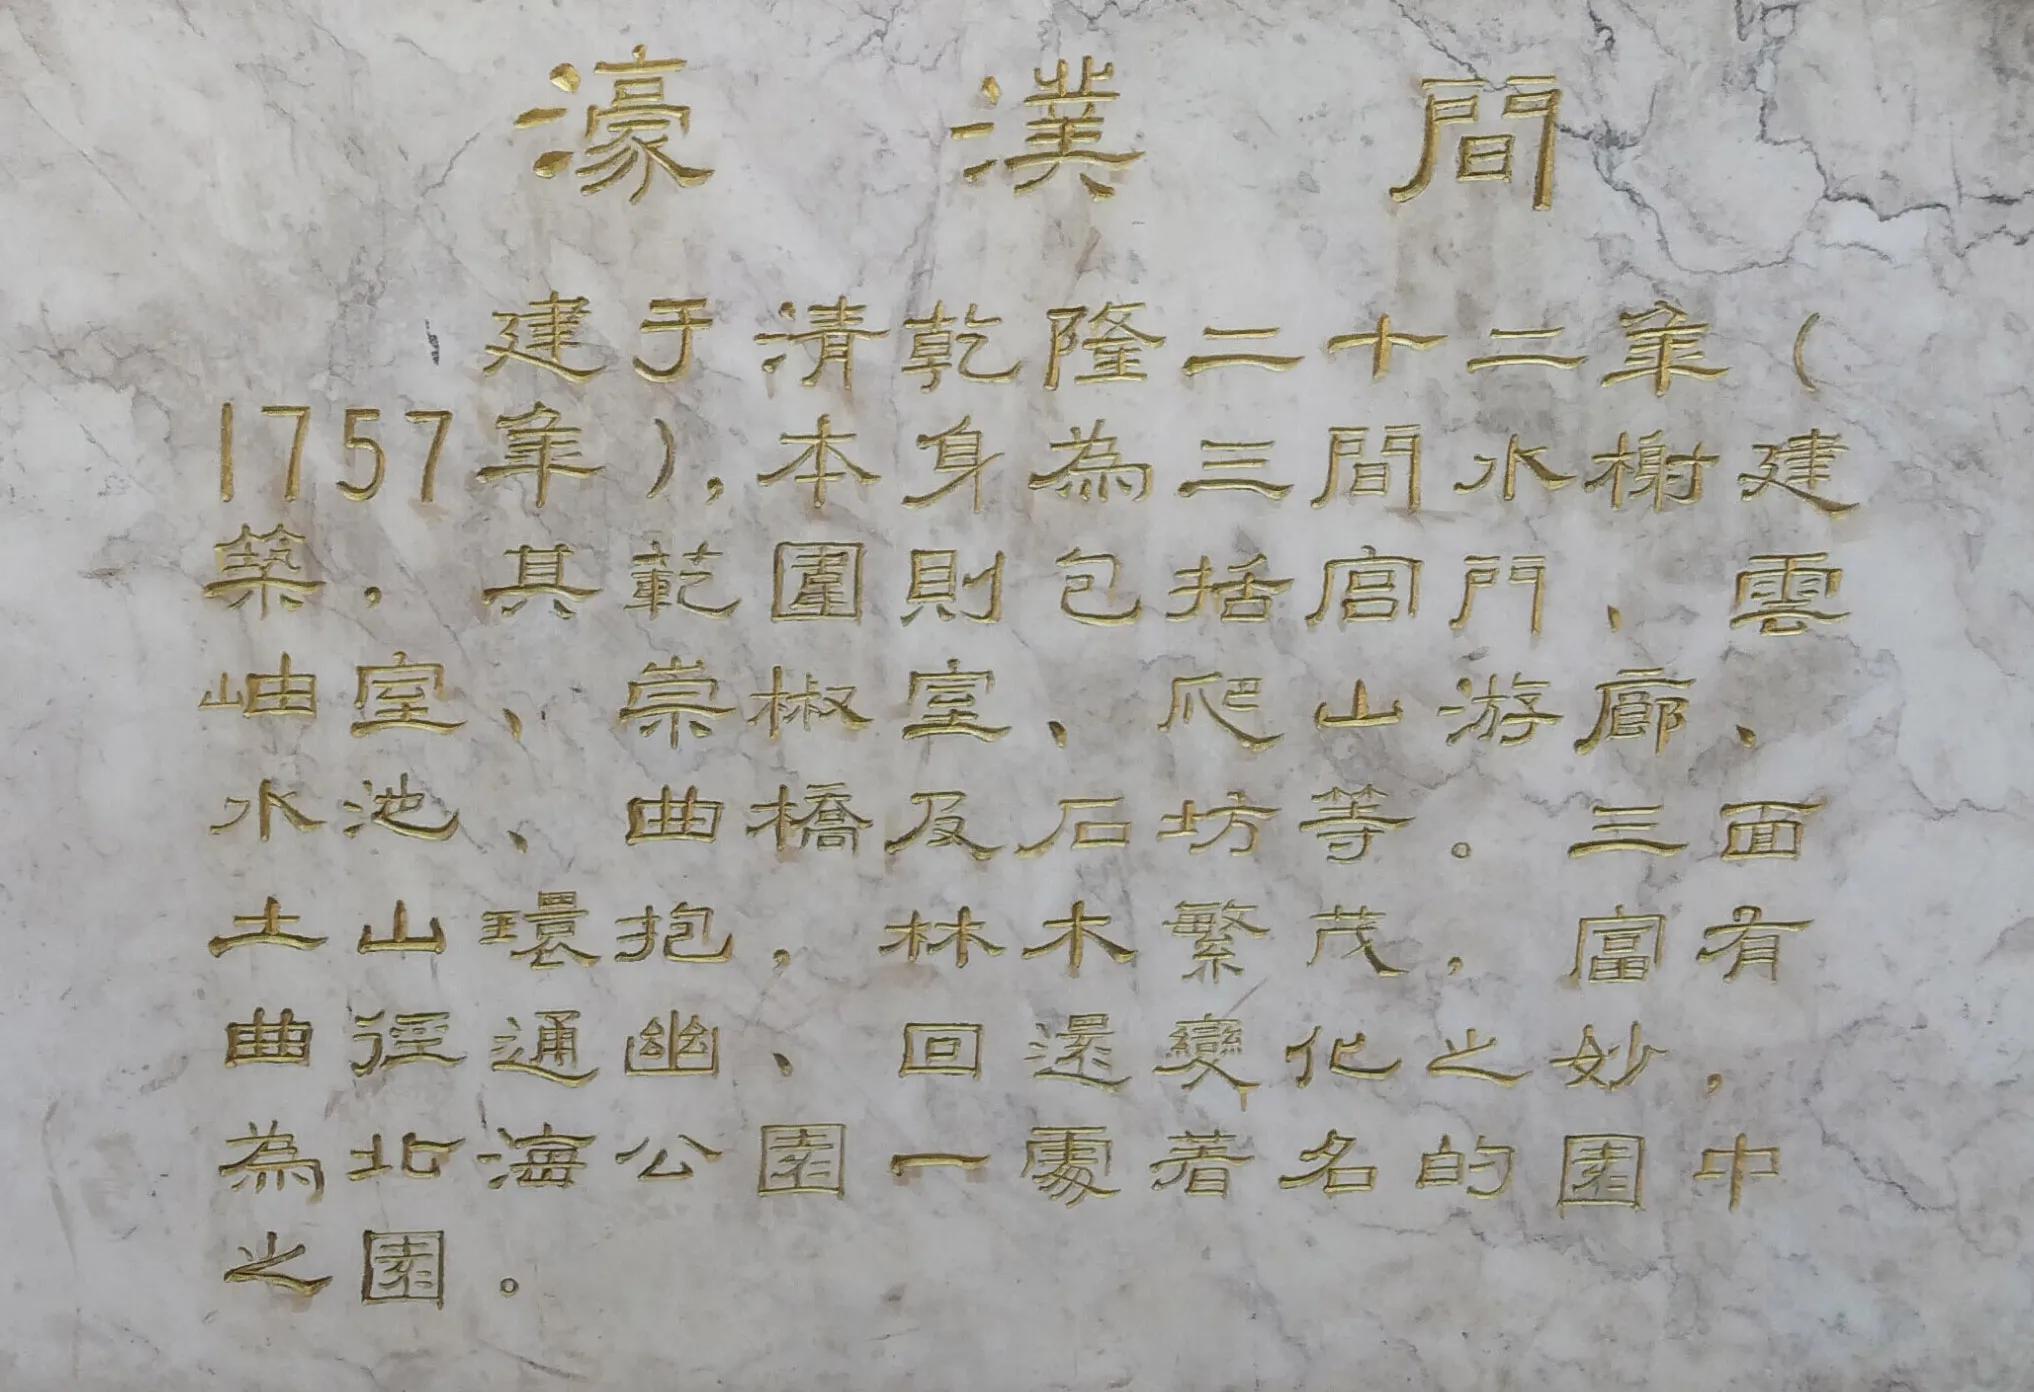 濠濮間
建于清乾隆二十二年（
1757年），本身為三間水榭建
築，其範圍則為包括宮門、雲
岫室、崇椒室、爬山游廊、
水池、曲橋及石坊等。三面
土山環抱，林木繁茂，富有
曲徑通幽、回還變化之妙，
為北海公園一處著名的園中
之園。